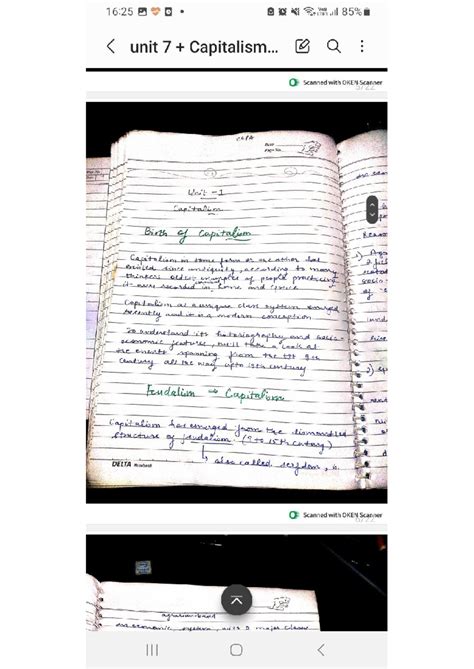 16:25
85%
unit 7 + Capitalism...
Scanned with OKEN Scanner
5/22
Unit - 1
Capitalism
Birth of Capitalism
Capitalism in some form or the other has
existed since antiquity, according to many
thinkers. of people practicing
it were recorded in Rome and Greece
Capitalism as a unique class system emerged
recently and it is a modern conception
To understand its historiography and socio-
economic features, we'll take a look at
the events spanning from the 9th
century all the way upto 15th century
Feudalism → Capitalism
Capitalism has emerged from the dismantled
structure of feudalism. (9 to 15th century)
↳ also called serfdom, is
DELTA
Scanned with OKEN Scanner
6/22
agrarian based
economic system, with 2 major classes